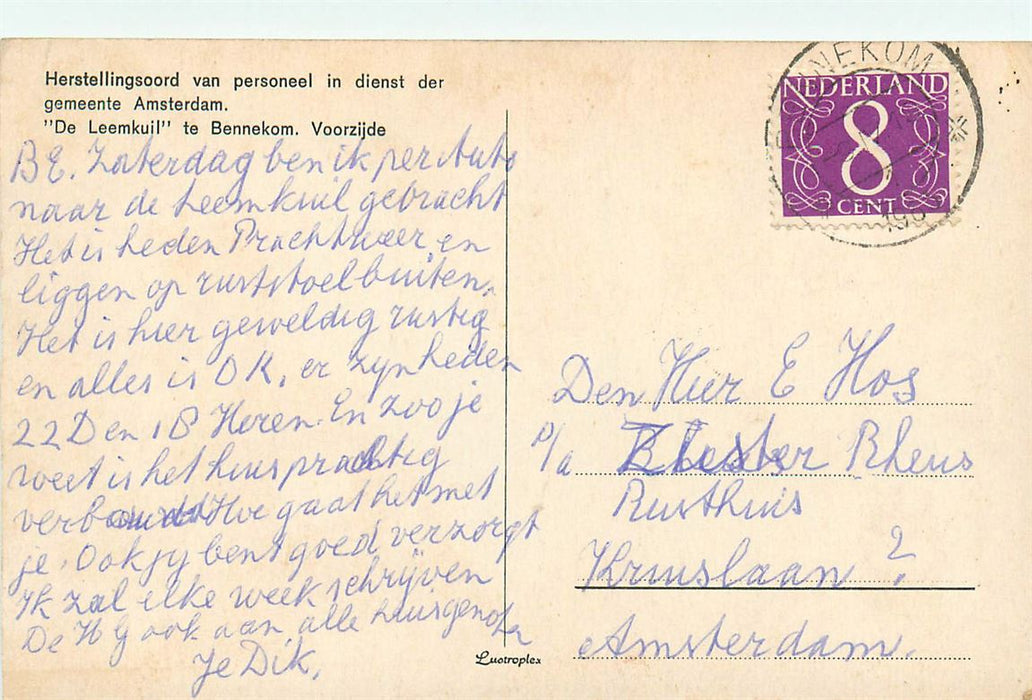 Herstellingsoord van personeel in dienst der
gemeente Amsterdam.
"De Leemkuil" te Bennekom. Voorzijde
BE. Zaterdag ben ik per Auto
naar de Leemkuil gebracht
Het is heden Prachtweer en
liggen op ruststoel buiten.
Het is hier geweldig rustig
en alles is OK, er zyn heden
22 D en 18 Heren. En zoo je
weet is het huis prachtig
verbouwd Hoe gaat het met
je. Ook jy bent goed verzorgt
Ik zal elke week schrijven
De H G ook aan alle huisgenoten
Je Dik.
BENNEKOM
NEDERLAND
8
CENT
Den Heer E Hos
p/a Rheus
Rusthuis
Kruislaan ?
Amsterdam.
Lustroplex